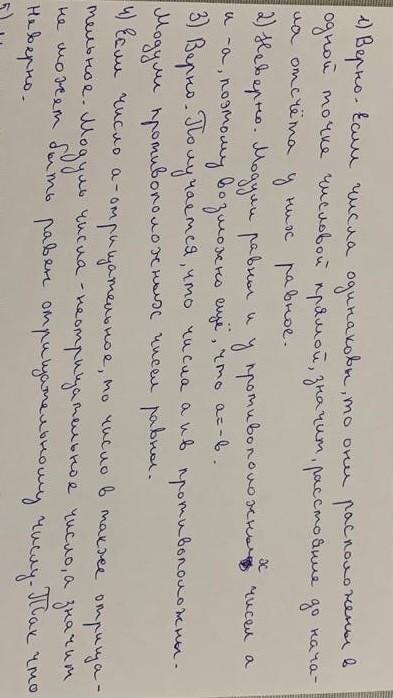 1) Верно. Если числа одинаковы, то они расположены в
одной точке числовой прямой, значит, расстояние до нача-
ла отсчёта у них равное.
2) Неверно. Модули равны и у противоположных чисел а
и -а, поэтому возможно ещё, что а=-в.
3) Верно. Получается, что числа а и в противоположны.
Модули противоположных чисел равны.
4) Если число а-отрицательное, то число в также отрица-
тельное. Модуль числа - неотрицательное число, а значит
не может быть равен отрицательному числу. Так что
Неверно.
5)